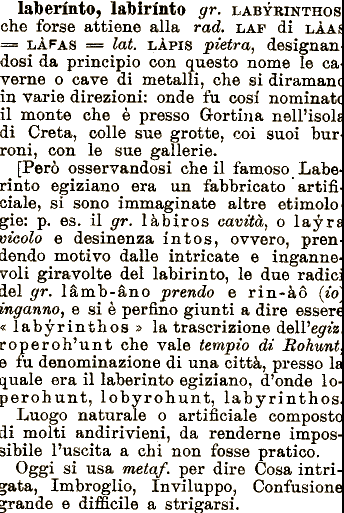 laberínto, labirínto gr. LABÝRINTHOS
che forse attiene alla rad. LAF di LÀAS
= LÀFAS = lat. LÀPIS pietra, designan-
dosi da principio con questo nome le ca-
verne o cave di metalli, che si diramano
in varie direzioni: onde fu cosí nominato
il monte che è presso Gortina nell'isola
di Creta, colle sue grotte, coi suoi bur-
roni, con le sue gallerie.
[Però osservandosi che il famoso Labe-
rinto egiziano era un fabbricato artifi-
ciale, si sono immaginate altre etimolo-
gie: p. es. il gr. làbiros cavità, o laýra
vicolo e desinenza íntos, ovvero, pren-
dendo motivo dalle intricate e inganne-
voli giravolte del labirinto, le due radici
del gr. lâmb-âno prendo e rin-àô (io)
inganno, e si è perfino giunti a dire essere
« labýrinthos » la trascrizione dell'egiz.
roperoh'unt che vale tempio di Rohunt,
e fu denominazione di una città, presso la
quale era il laberinto egiziano, d'onde lo-
perohunt, lobyrohunt, labyrinthos.
Luogo naturale o artificiale composto
di molti andirivieni, da renderne impos-
sibile l'uscita a chi non fosse pratico.
Oggi si usa metaf. per dire Cosa intri-
gata, Imbroglio, Inviluppo, Confusione
grande e difficile a strigarsi.